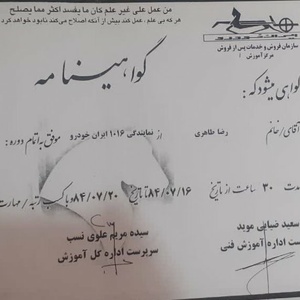 من عمل علی غیر علم کان ما یفسد اکثر مما یصلح
هر که بی علم، عمل کند بیش از آنکه اصلاح می‌کند نابود خواهد کرد
سازمان فروش و خدمات پس از فروش
مرکز آموزش
گواهینامه
گواهی میشود که :
آقای/خانم رضا طاهری از نمایندگی ۱۰۱۶ ایران خودرو موفق به اتمام دوره :
مدت ۳۰ ساعت از تاریخ ۸۴/۰۷/۱۶ تا تاریخ ۸۴/۰۷/۲۰ و با کسب رتبه / مهارت
سعید ضیایی موید
سرپرست اداره آموزش فنی
سیده مریم علوی نسب
سرپرست اداره کل آموزش